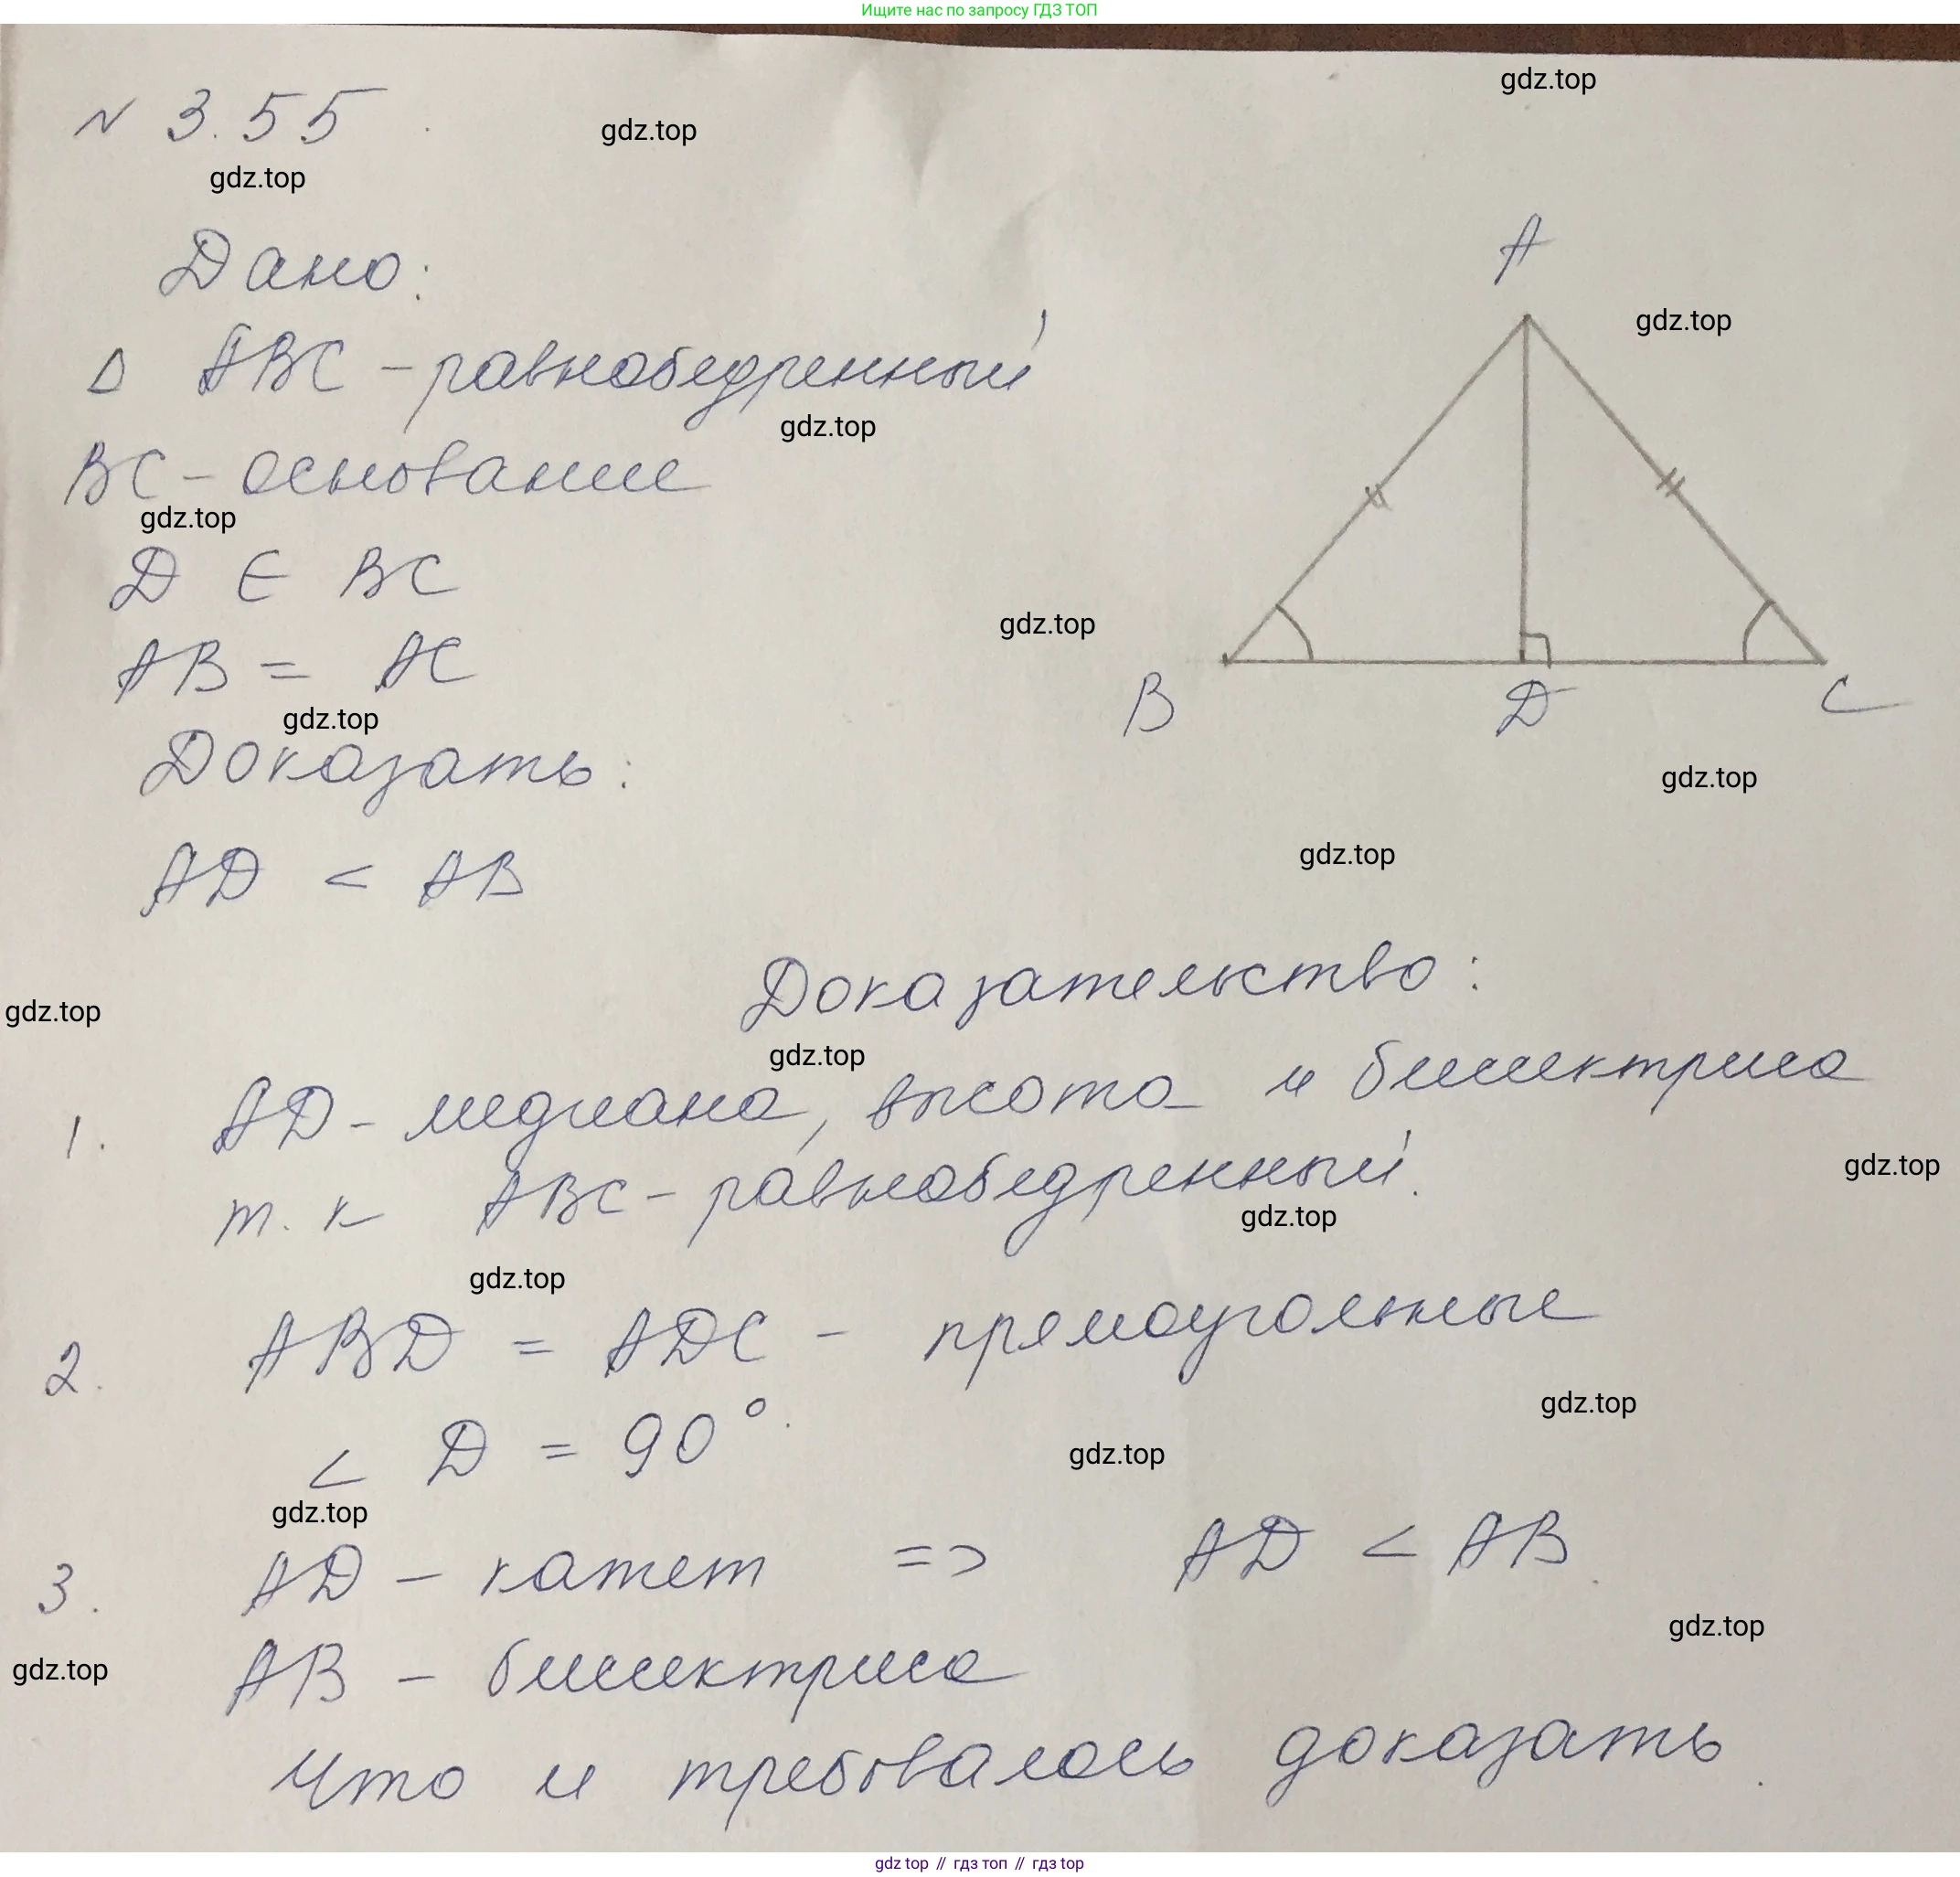 Ищите нас по запросу ГДЗ ТОП
gdz.top
N 3.55
gdz.top
gdz.top
Дано:
A
Δ ABC - равнобедренный
gdz.top
gdz.top
BC - основание
gdz.top
D ∈ BC
gdz.top
AB = AC
gdz.top
B D C
Доказать:
gdz.top
AD < AB
gdz.top
Доказательство:
gdz.top
gdz.top
1. AD - медиана, высота и биссектриса
gdz.top
т. к ABC - равнобедренный.
gdz.top
gdz.top
2. ABD = ADC - прямоугольные
gdz.top
< D = 90°.
gdz.top
gdz.top
3. AD - катет => AD < AB.
gdz.top
gdz.top
AB - биссектриса
Что и требовалось доказать.
gdz top // гдз топ // gdz top